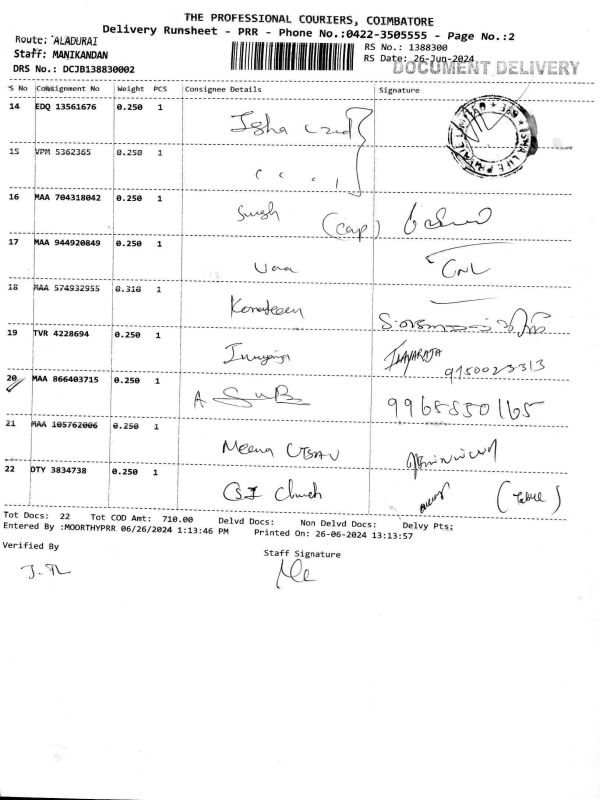 THE PROFESSIONAL COURIERS, COIMBATORE
Delivery Runsheet - PRR - Phone No.:0422-3505555 - Page No.:2
Route: ALADURAI
Staff: MANIKANDAN
DRS No.: DCJB138830002
RS No.: 1388300
RS Date: 26-Jun-2024
DOCUMENT DELIVERY
S No Consignment No Weight PCS Consignee Details Signature
14 EDQ 13561676 0.250 1
15 VPM 5362365 0.250 1
16 MAA 704318042 0.250 1 Singh (cap)
17 MAA 944920849 0.250 1
18 MAA 574932955 0.310 1
19 TVR 4228694 0.250 1 ILAYARAJA 9150023313
20 MAA 866403715 0.250 1 A SUB 9968550165
21 MAA 105762006 0.250 1 Meena
22 OTY 3834738 0.250 1 CSI Church
Tot Docs: 22 Tot COD Amt: 710.00 Delvd Docs: Non Delvd Docs: Delvy Pts:
Entered By :MOORTHYPRR 06/26/2024 1:13:46 PM Printed On: 26-06-2024 13:13:57
Verified By
Staff Signature